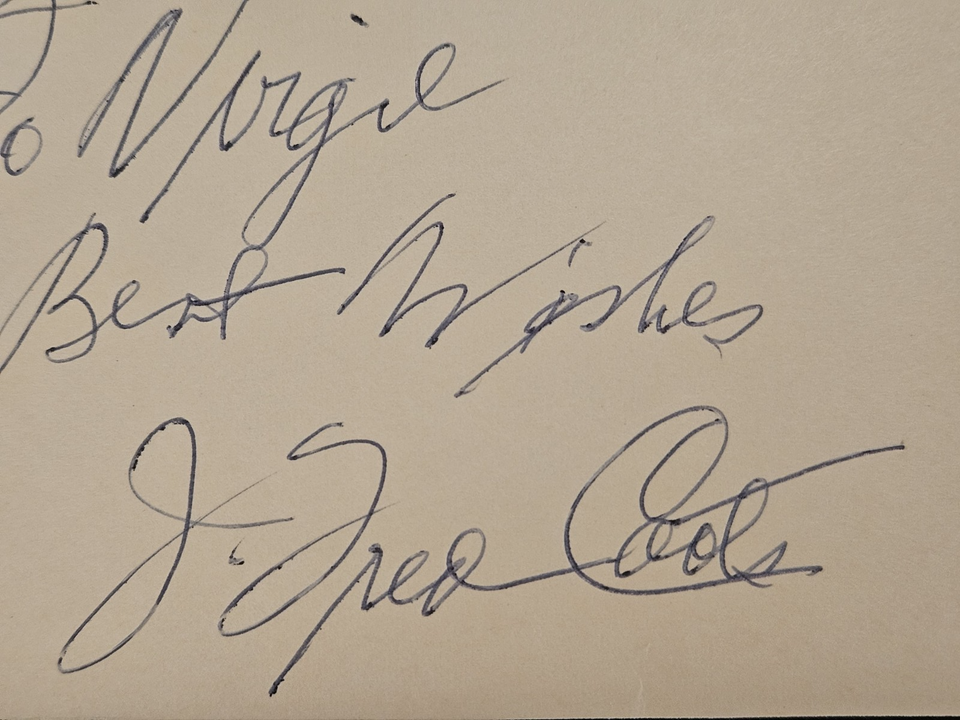 To Virgil
Best Wishes
J. Fred Coots